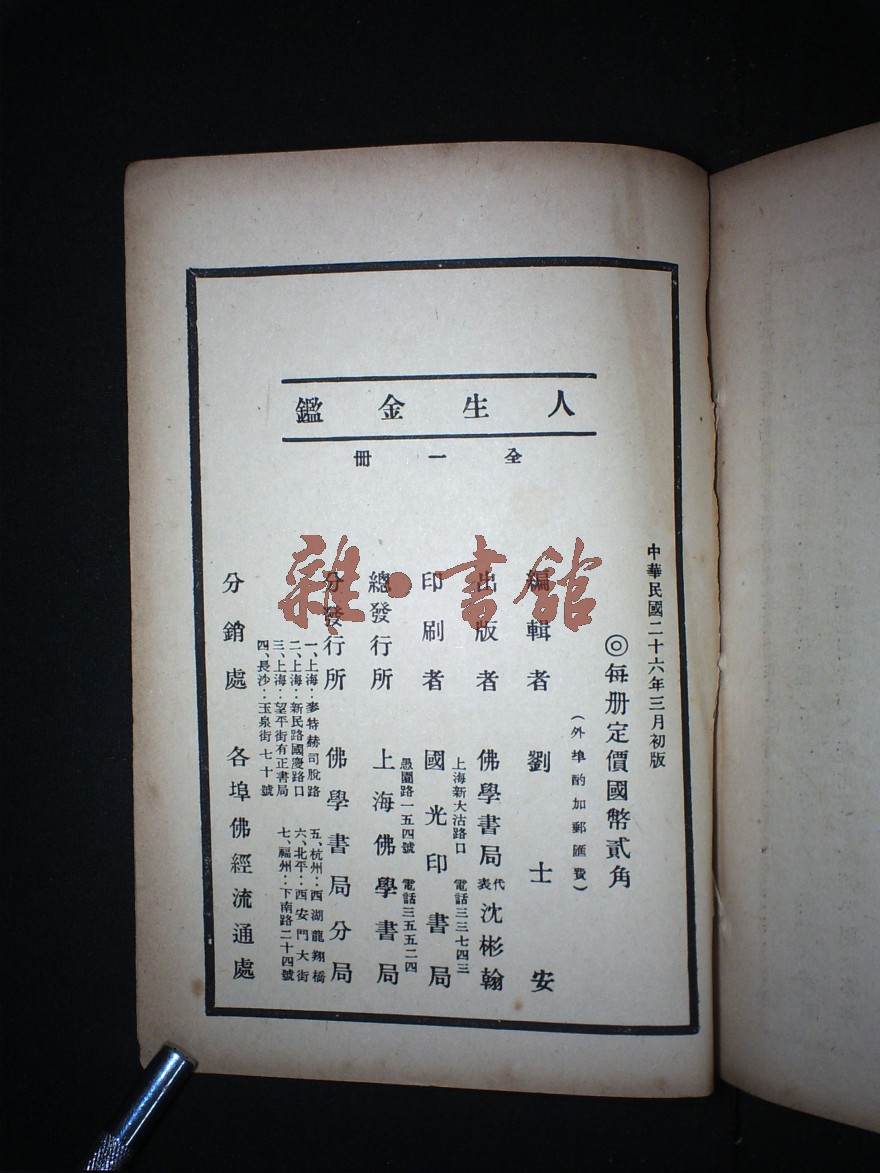 人生金鑑
全一冊
中華民國二十六年三月初版
◎每册定價國幣貳角
(外埠酌加郵匯費)
編輯者 劉士安
出版者 佛學書局 代表 沈彬翰
上海新大沽路口 電話三三七四三
印刷者 國光印書局
愚園路一五四號 電話三五五二四
總發行所 上海佛學書局
分發行所 佛學書局分局
一、上海：麥特赫司脫路
二、上海：新民路國慶路口
三、上海：望平街有正書局
四、長沙：玉泉街七十號
五、杭州：西湖龍翔橋
六、北平：西安門大街
七、福州：下南路二十四號
分銷處 各埠佛經流通處
雜·書館